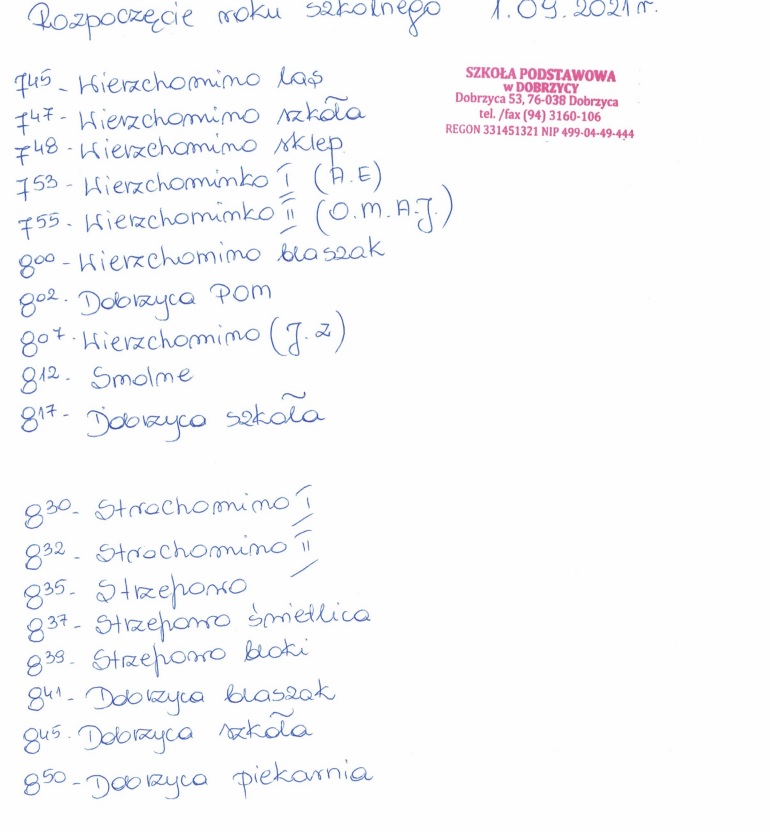 Rozpoczęcie roku szkolnego 1.09.2021 r.
SZKOŁA PODSTAWOWA
w DOBRZYCY
Dobrzyca 53, 76-038 Dobrzyca
tel. /fax (94) 3160-106
REGON 331451321 NIP 499-04-49-444
7⁴⁵ - Wierzchomino las
7⁴⁷ - Wierzchomino szkoła
7⁴⁸ - Wierzchomino sklep
7⁵³ - Wierzchominko I (A.E)
7⁵⁵ - Wierzchominko II (O.M.A.J.)
8⁰⁰ - Wierzchomino blaszak
8⁰² - Dobrzyca POM
8⁰⁷ - Wierzchomino (J.Z)
8¹² - Smolne
8¹⁷ - Dobrzyca szkoła
8³⁰ - Strachomino I
8³² - Strachomino II
8³⁵ - Strzepowo
8³⁷ - Strzepowo świetlica
8³⁹ - Strzepowo bloki
8⁴¹ - Dobrzyca blaszak
8⁴⁵ - Dobrzyca szkoła
8⁵⁰ - Dobrzyca piekarnia